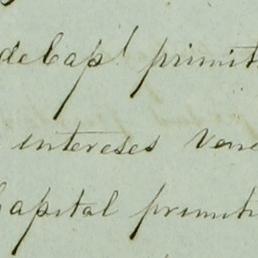 de Cap.l primit
intereses ven
Capital primiti